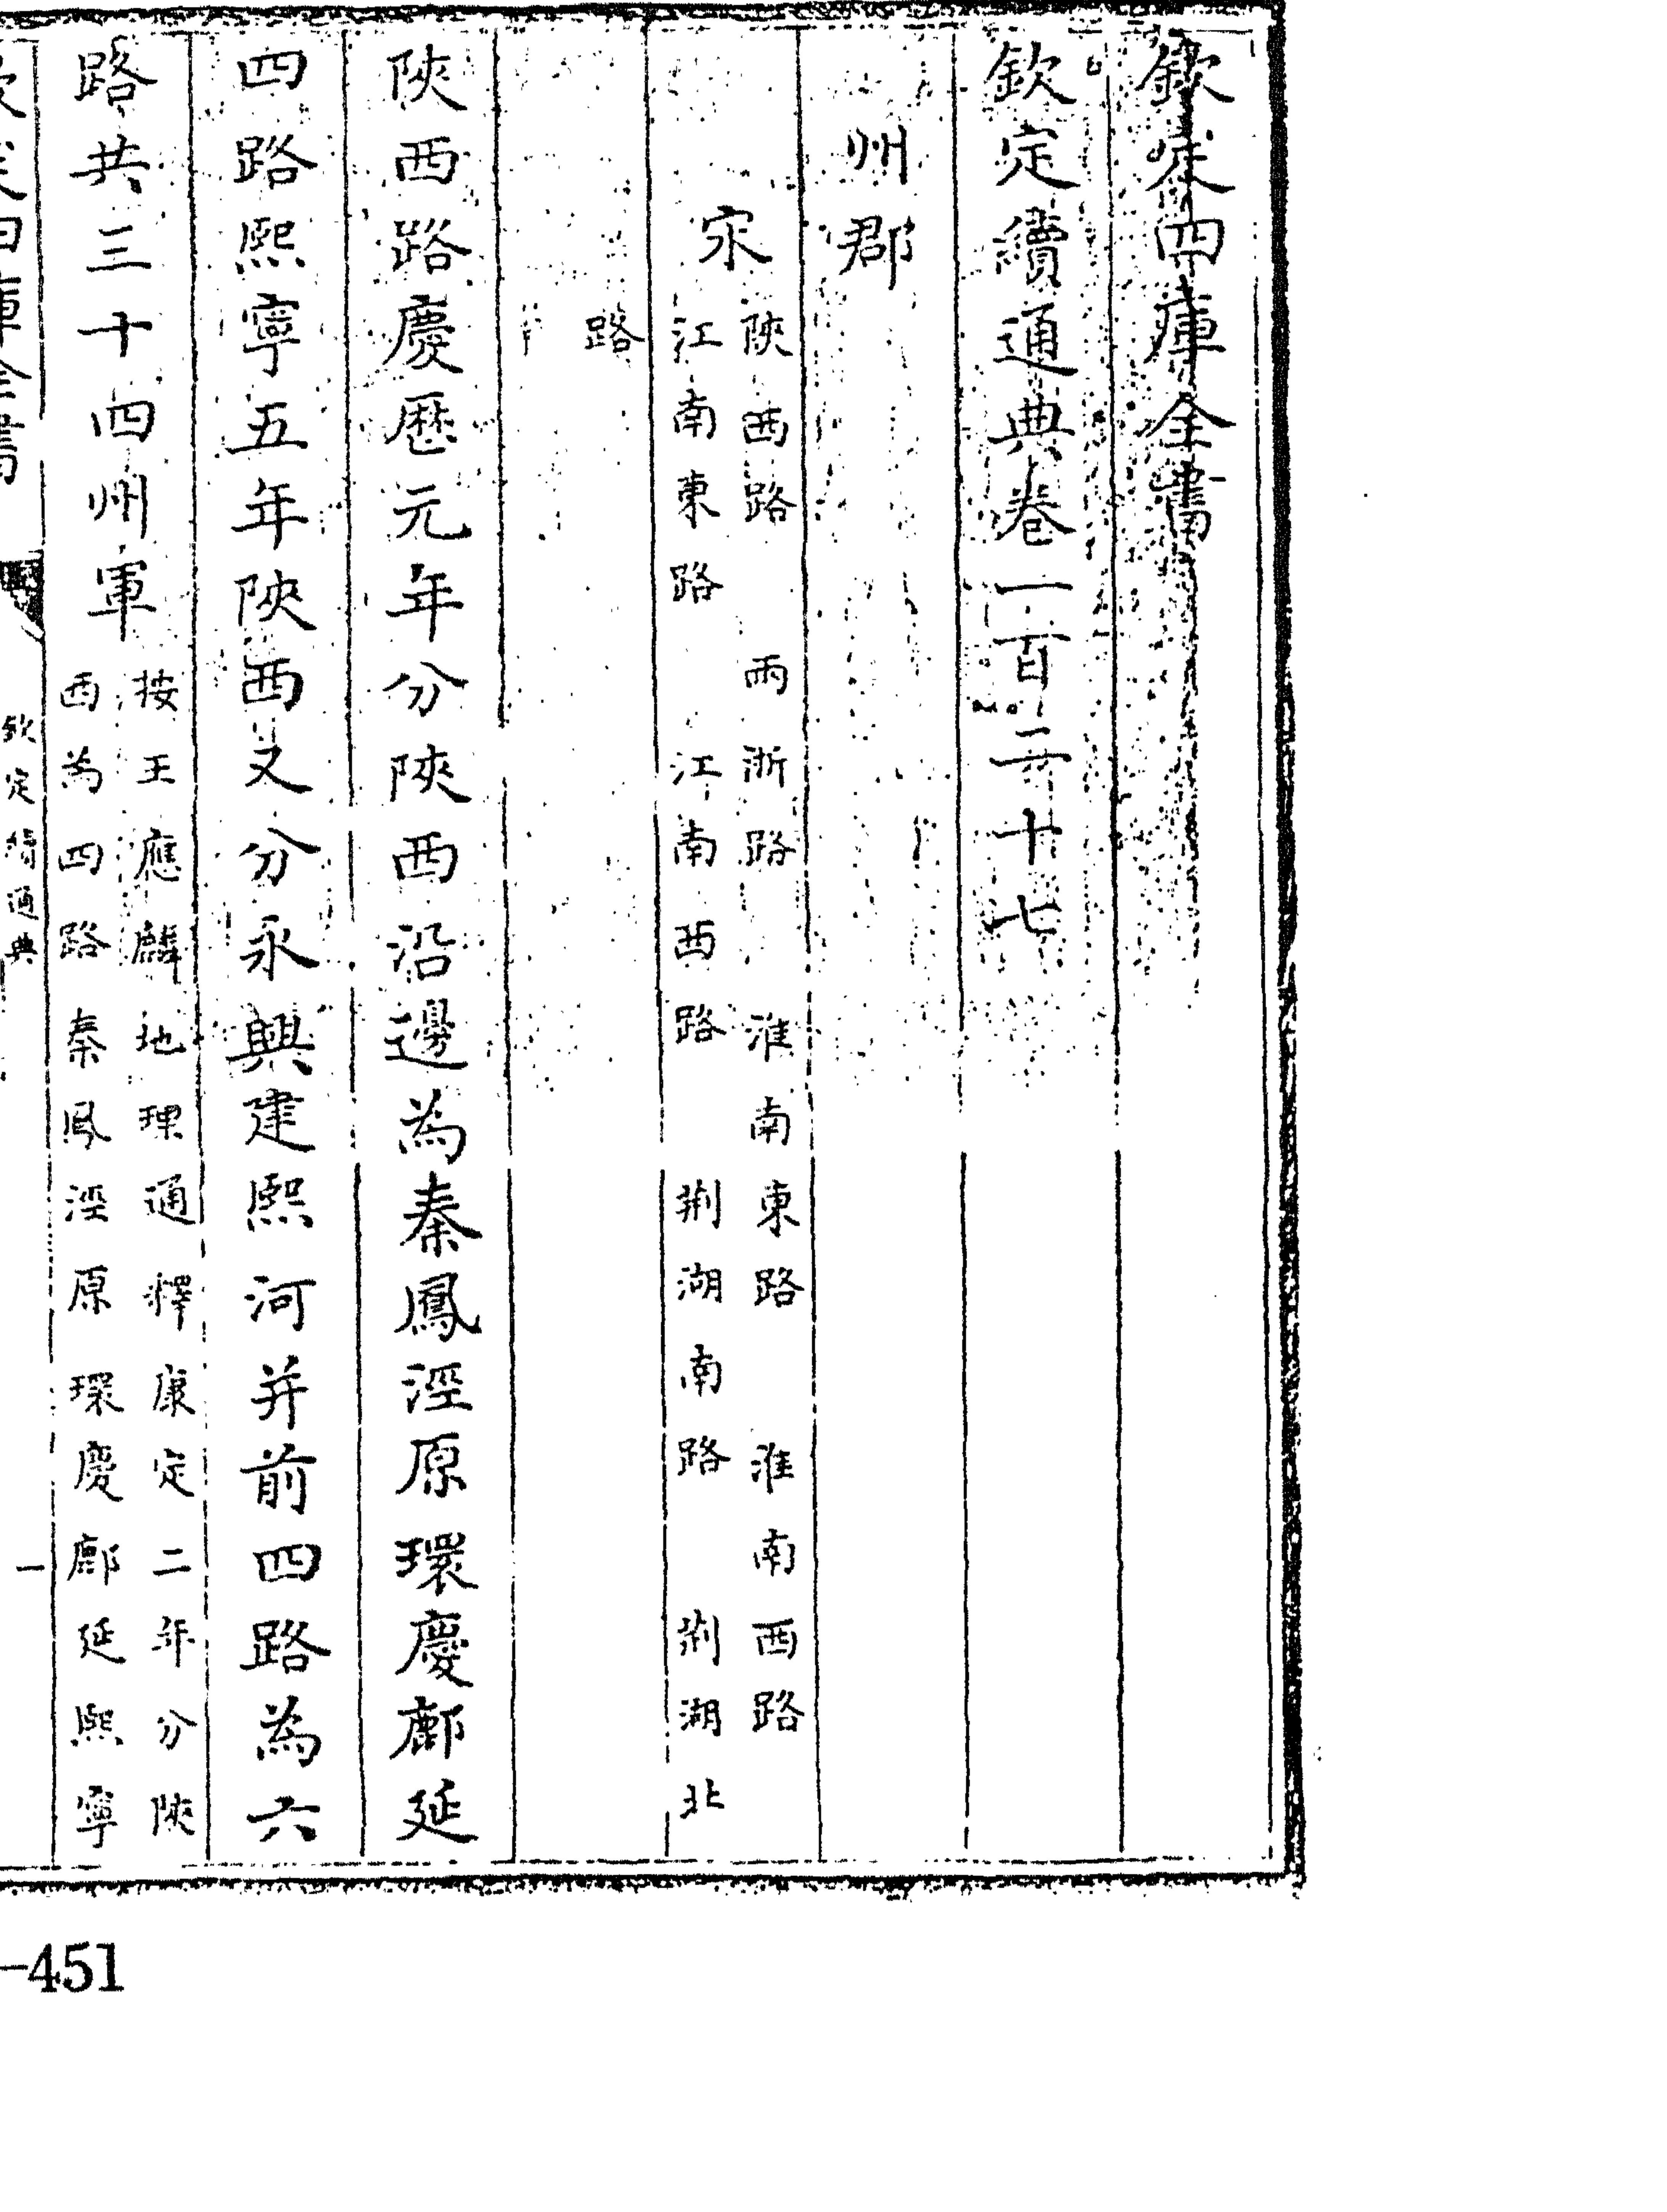 欽定四庫全書
欽定續通典卷一百二十七
州郡
宋
陝西路 兩浙路 淮南東路 淮南西路
江南東路 江南西路 荆湖南路 荆湖北
路
陝西路慶歷元年分陝西沿邊為秦鳳涇原環慶鄜延
四路熙寧五年陝西又分永興建熙河并前四路為六
路共三十四州軍
按王應麟地理通釋康定二年分陝
西為四路秦鳳涇原環慶鄜延熙寧
欽定四庫全書
欽定續通典
一
-451